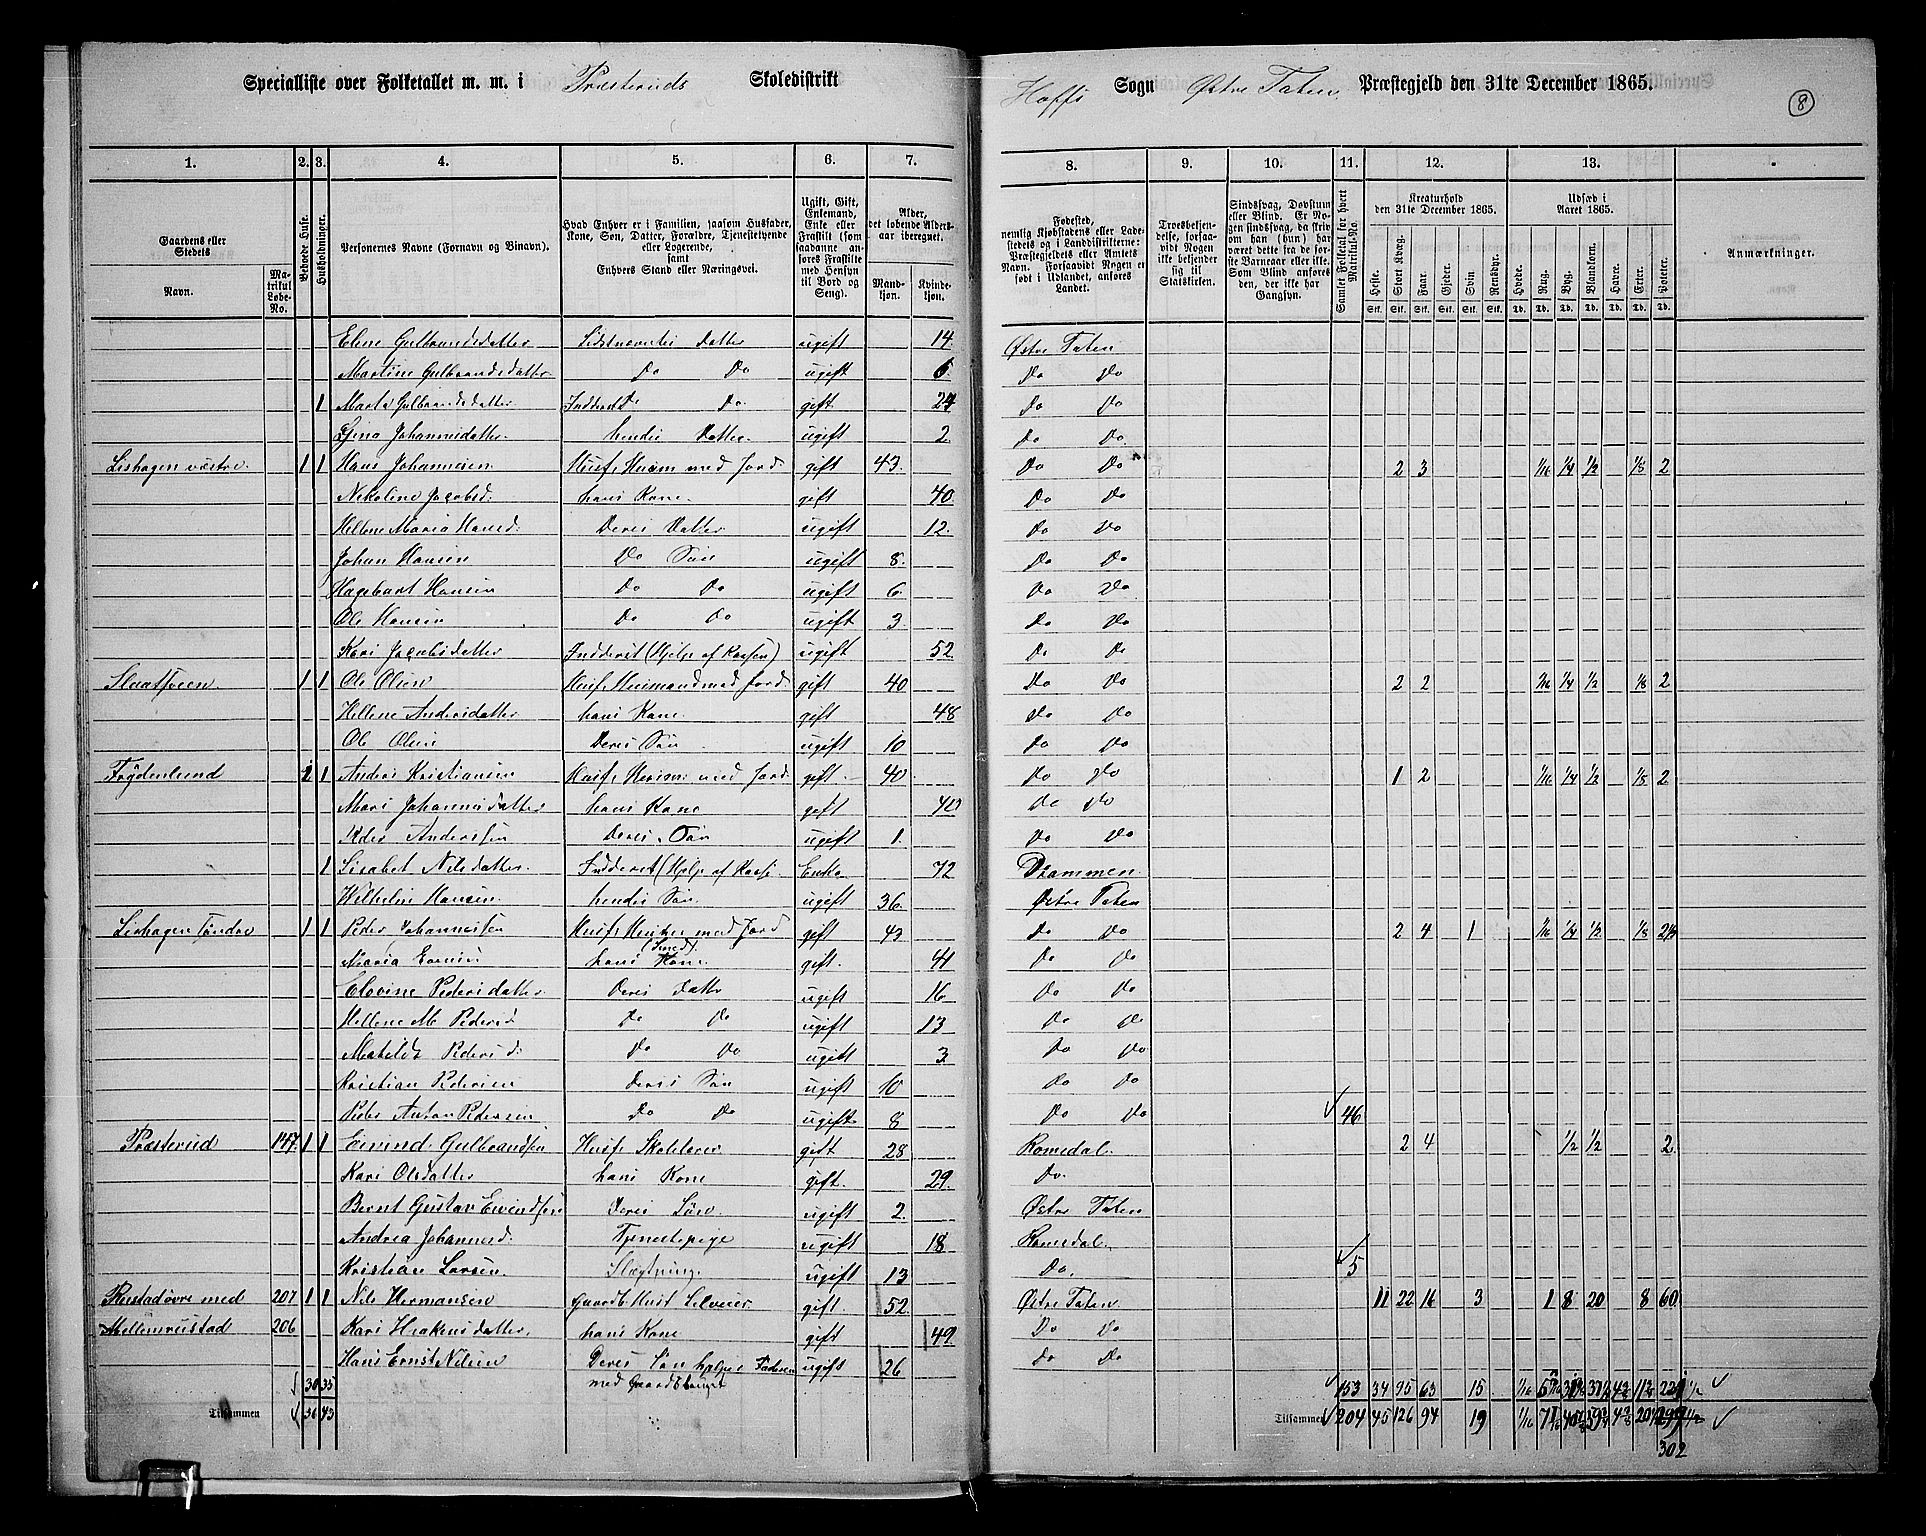 Specialliste over Folketallet m. m. i Præsteruds Skoledistrikt Hoffs Sogn Østre Toten Præstegjeld den 31te December 1865.
8
1. 2. 3. 4. 5. 6. 7. 8. 9. 10. 11. 12. 13.
Gaardens eller Stedets Navn. Matrikul Løbe-No.
Beboede Huse.
Husholdninger.
Personernes Navne (Fornavn og Binavn).
Hvad Enhver er i Familien, saasom Husfader, Kone, Søn, Datter, Forældre, Tjenestetyende eller Logerende, samt Enhvers Stand eller Næringsvei.
Ugift, Gift, Enkemand, Enke eller Fraskilt (saadanne anføres som Fraskilte med Hensyn til Bord og Seng).
Alder, det løbende Aldersaar iberegnet. Mandkjøn. Kvindekjøn.
Fødested, nemlig Kjøbstadens eller Ladestedets og i Landdistrikterne: Præstegjeldets eller Amtets Navn. Forsaavidt Nogen er født i Udlandet, anføres Landet.
Troesbekjendelse, forsaavidt Nogen ikke bekjender sig til Statskirken.
Sindssvag, Døvstum eller Blind. Er Nogen sindssvag, da skriv om han (hun) har været dette fra de første Barneaar eller ikke. Som Blind anføres den, der ikke har Gangsyn.
Samlet Folketal for hvert Matrikul-No.
Kreaturhold den 31te December 1865.
Heste. Stort Kvæg. Faar. Gjeder. Svin. Rensdyr.
Udsæd i Aaret 1865.
Hvede. Rug. Byg. Blandkorn. Havre. Erter. Poteter.
Anmærkninger.
Elene Gulbrandsdatter Sidstnævntes Datter ugift 14 Østre Toten
Martine Gulbrandsdatter Do Do ugift 6 Do Do
1 Marte Gulbrandsdatter Inderst Do gift 24 Do Do
Johannesdatter hendes Datter ugift 2 Do Do
Lishagen vestre 1 1 Hans Johannesen Husf. Husm med Jord gift 43 Do Do 2 3 1/16 1/4 1/2 1/8 2
Nikoline Jacobsd. hans Kone gift 40 Do Do
Hellene Maria Hansd. Deres Datter ugift 12 Do Do
Johan Hansen Do Søn ugift 8 Do Do
Hagebart Hansen Do Do ugift 6 Do Do
Ole Hansen Do Do ugift 3 Do Do
Kari Jacobsdatter Inderst (Hjelp af Kassen) ugift 52 Do Do
1 1 Ole Olsen Husf. Husmand med Jord gift 40 Do Do 2 2 1/4 1/2 1/8 2
Hellene Andersdatter hans Kone gift 48 Do Do
Ole Olsen Deres Søn ugift 10 Do Do
Frydenlund 1 1 Anders Kristiansen Husf. Husm med Jord gift 40 Do Do 1 2 1/16 1/4 1/2 1/8 2
Mari Johannesdatter hans Kone gift 40 Do Do
Anderssen Deres Søn ugift 1 Do Do
1 Lisabet Nilsdatter Inderst (Hjelp af Kasse Enke 72 Drammen
Wilhelm Hansen hendes Søn ugift 36 Østre Toten
Lishagen søndre 1 1 Peder Johannessen Husf. Husm med Jord (Smed) gift 43 Do Do 2 4 1 1/16 1/4 1/2 1/8 2 1/2
Maria hans Kone gift 41 Do Do
Elovine Pedersdatter Deres Datter ugift 16 Do Do
Hellene M. Pedersd Do Do ugift 13 Do Do
Matilde Pedersd. Do Do ugift 3 Do Do
Kristian Pedersen Deres Søn ugift 10 Do Do
Peder Anton Pedersen Do Do ugift 8 Do Do 46
Præsterud 147 1 1 Eivind Gulbrandsen Husf. Skolelærer gift 28 Romedal 2 4 1/2 1/2 2
Kari Olsdatter hans Kone gift 29 Do
Bernt Gustav Eivindsen Deres Søn ugift 2 Østre Toten
Andrea Johannesd. Tjenestepige ugift 18 Romedal
Kristian Larsen Slægtning ugift 13 Do. 5
Rustad øvre med 207 1 1 Nils Hermansen Gaardb. Husf Selveier gift 52 Østre Toten 11 22 16 3 1 8 20 8 60
Mellemrustad 206 Kari Haakensdatter hans Kone gift 49 Do Do
Hans Ernst Nilsen Deres Søn hjelper Faderen med Gaardsbruget ugift 26 Do Do
30 35 153 34 95 63 15 1/16
Tilsammen 36 43 Tilsammen 204 45 126 94 19 1/16
302